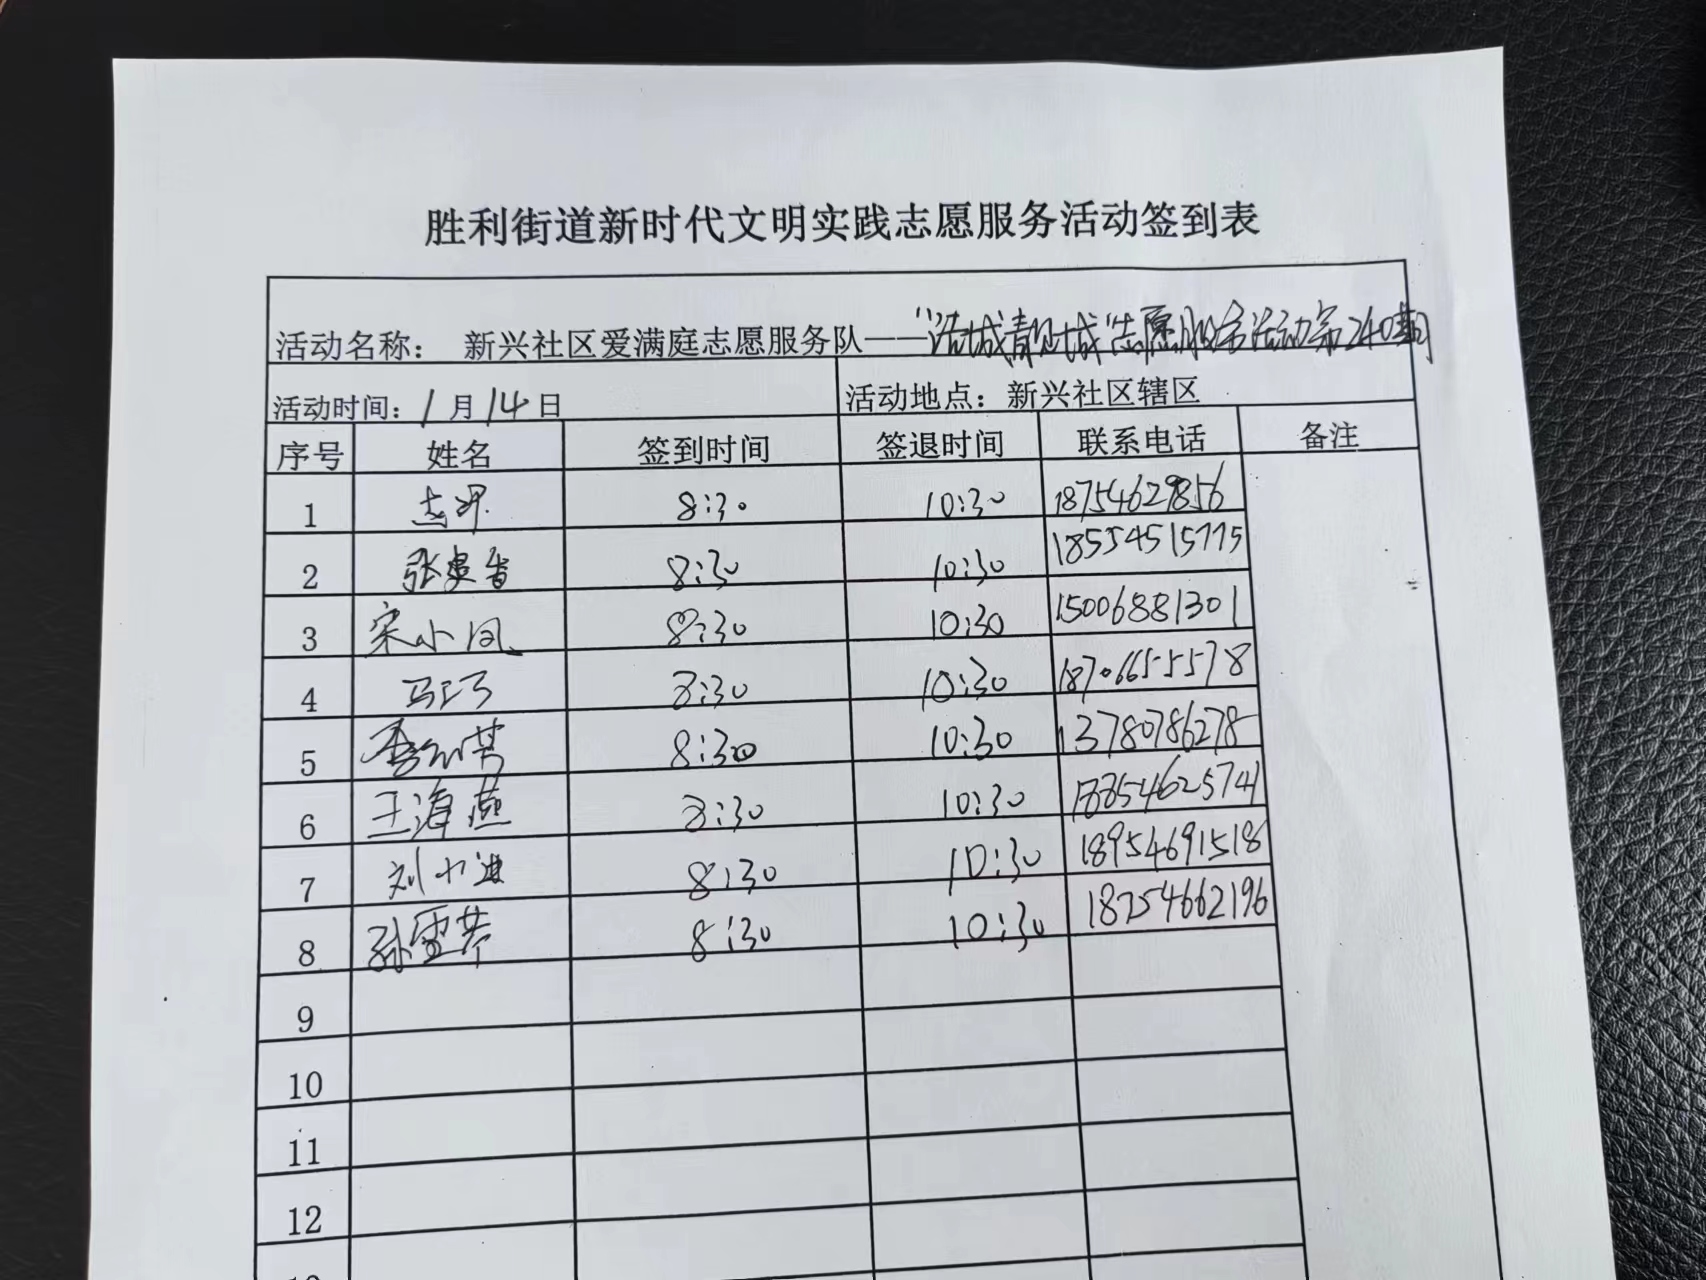 胜利街道新时代文明实践志愿服务活动签到表
活动名称： 新兴社区爱满庭志愿服务队——“洁城靓城”志愿服务活动第240期
活动时间：1月14日 活动地点：新兴社区辖区
序号 姓名 签到时间 签退时间 联系电话 备注
1 8:30 10:30 18754629856
2 张 香 8:30 10:30 18554515775
3 宋小凤 8:30 10:30 15006881301
4 马 8:30 10:30 18706655578
5 李 8:30 10:30 13780786278
6 王海燕 8:30 10:30 18854625741
7 刘小 8:30 10:30 18954691518
8 孙雪芹 8:30 10:30 18254662196
9
10
11
12